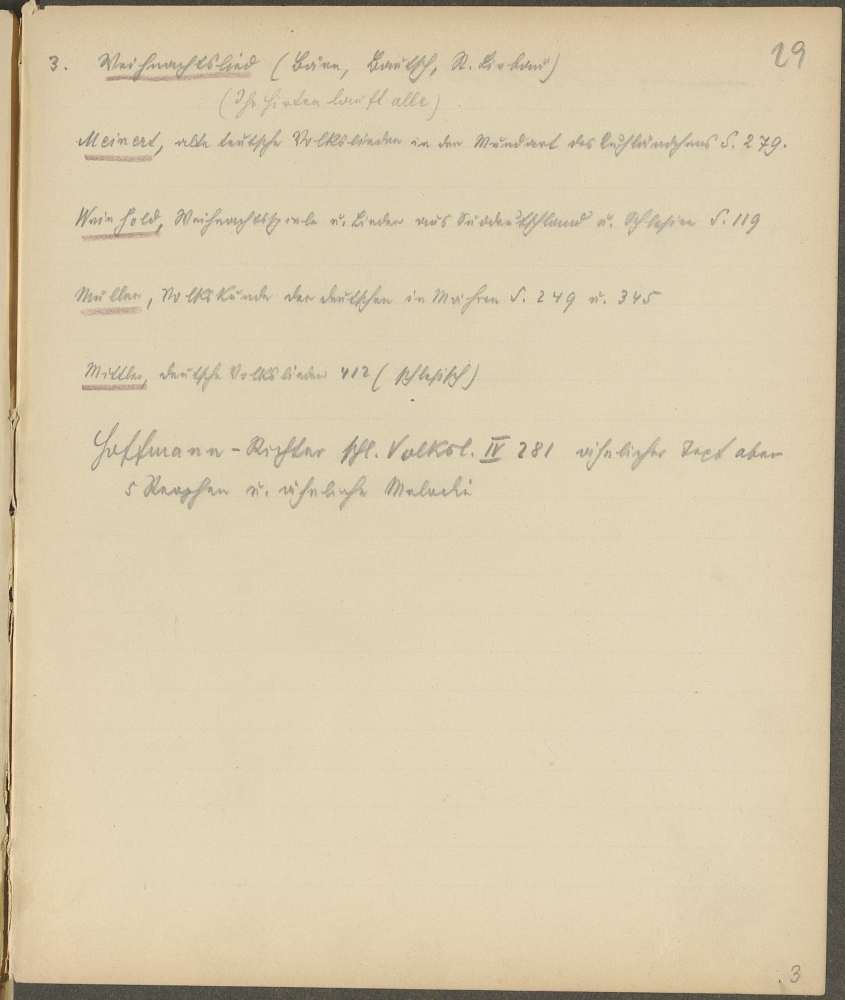 29
3. Weihnachtslied (Bärn, Bautsch, St. Liebau)
(Ihr Hirten lauft alle)
Meinert, alte teutsche Volkslieder in der Mundart des Kuhländchens S. 279.
Weinhold, Weihnachtsspiele u. Lieder aus Süddeutschland u. Schlesien S. 119
Müller, Volkskunde der deutschen in Mähren S. 249 u. 345
Mittler, deutsche Volkslieder 412 (schlesisch)
Hoffmann - Richter schl. Volksl. IV 281 ähnlicher Text aber
5 Strophen u. ähnliche Melodie
3